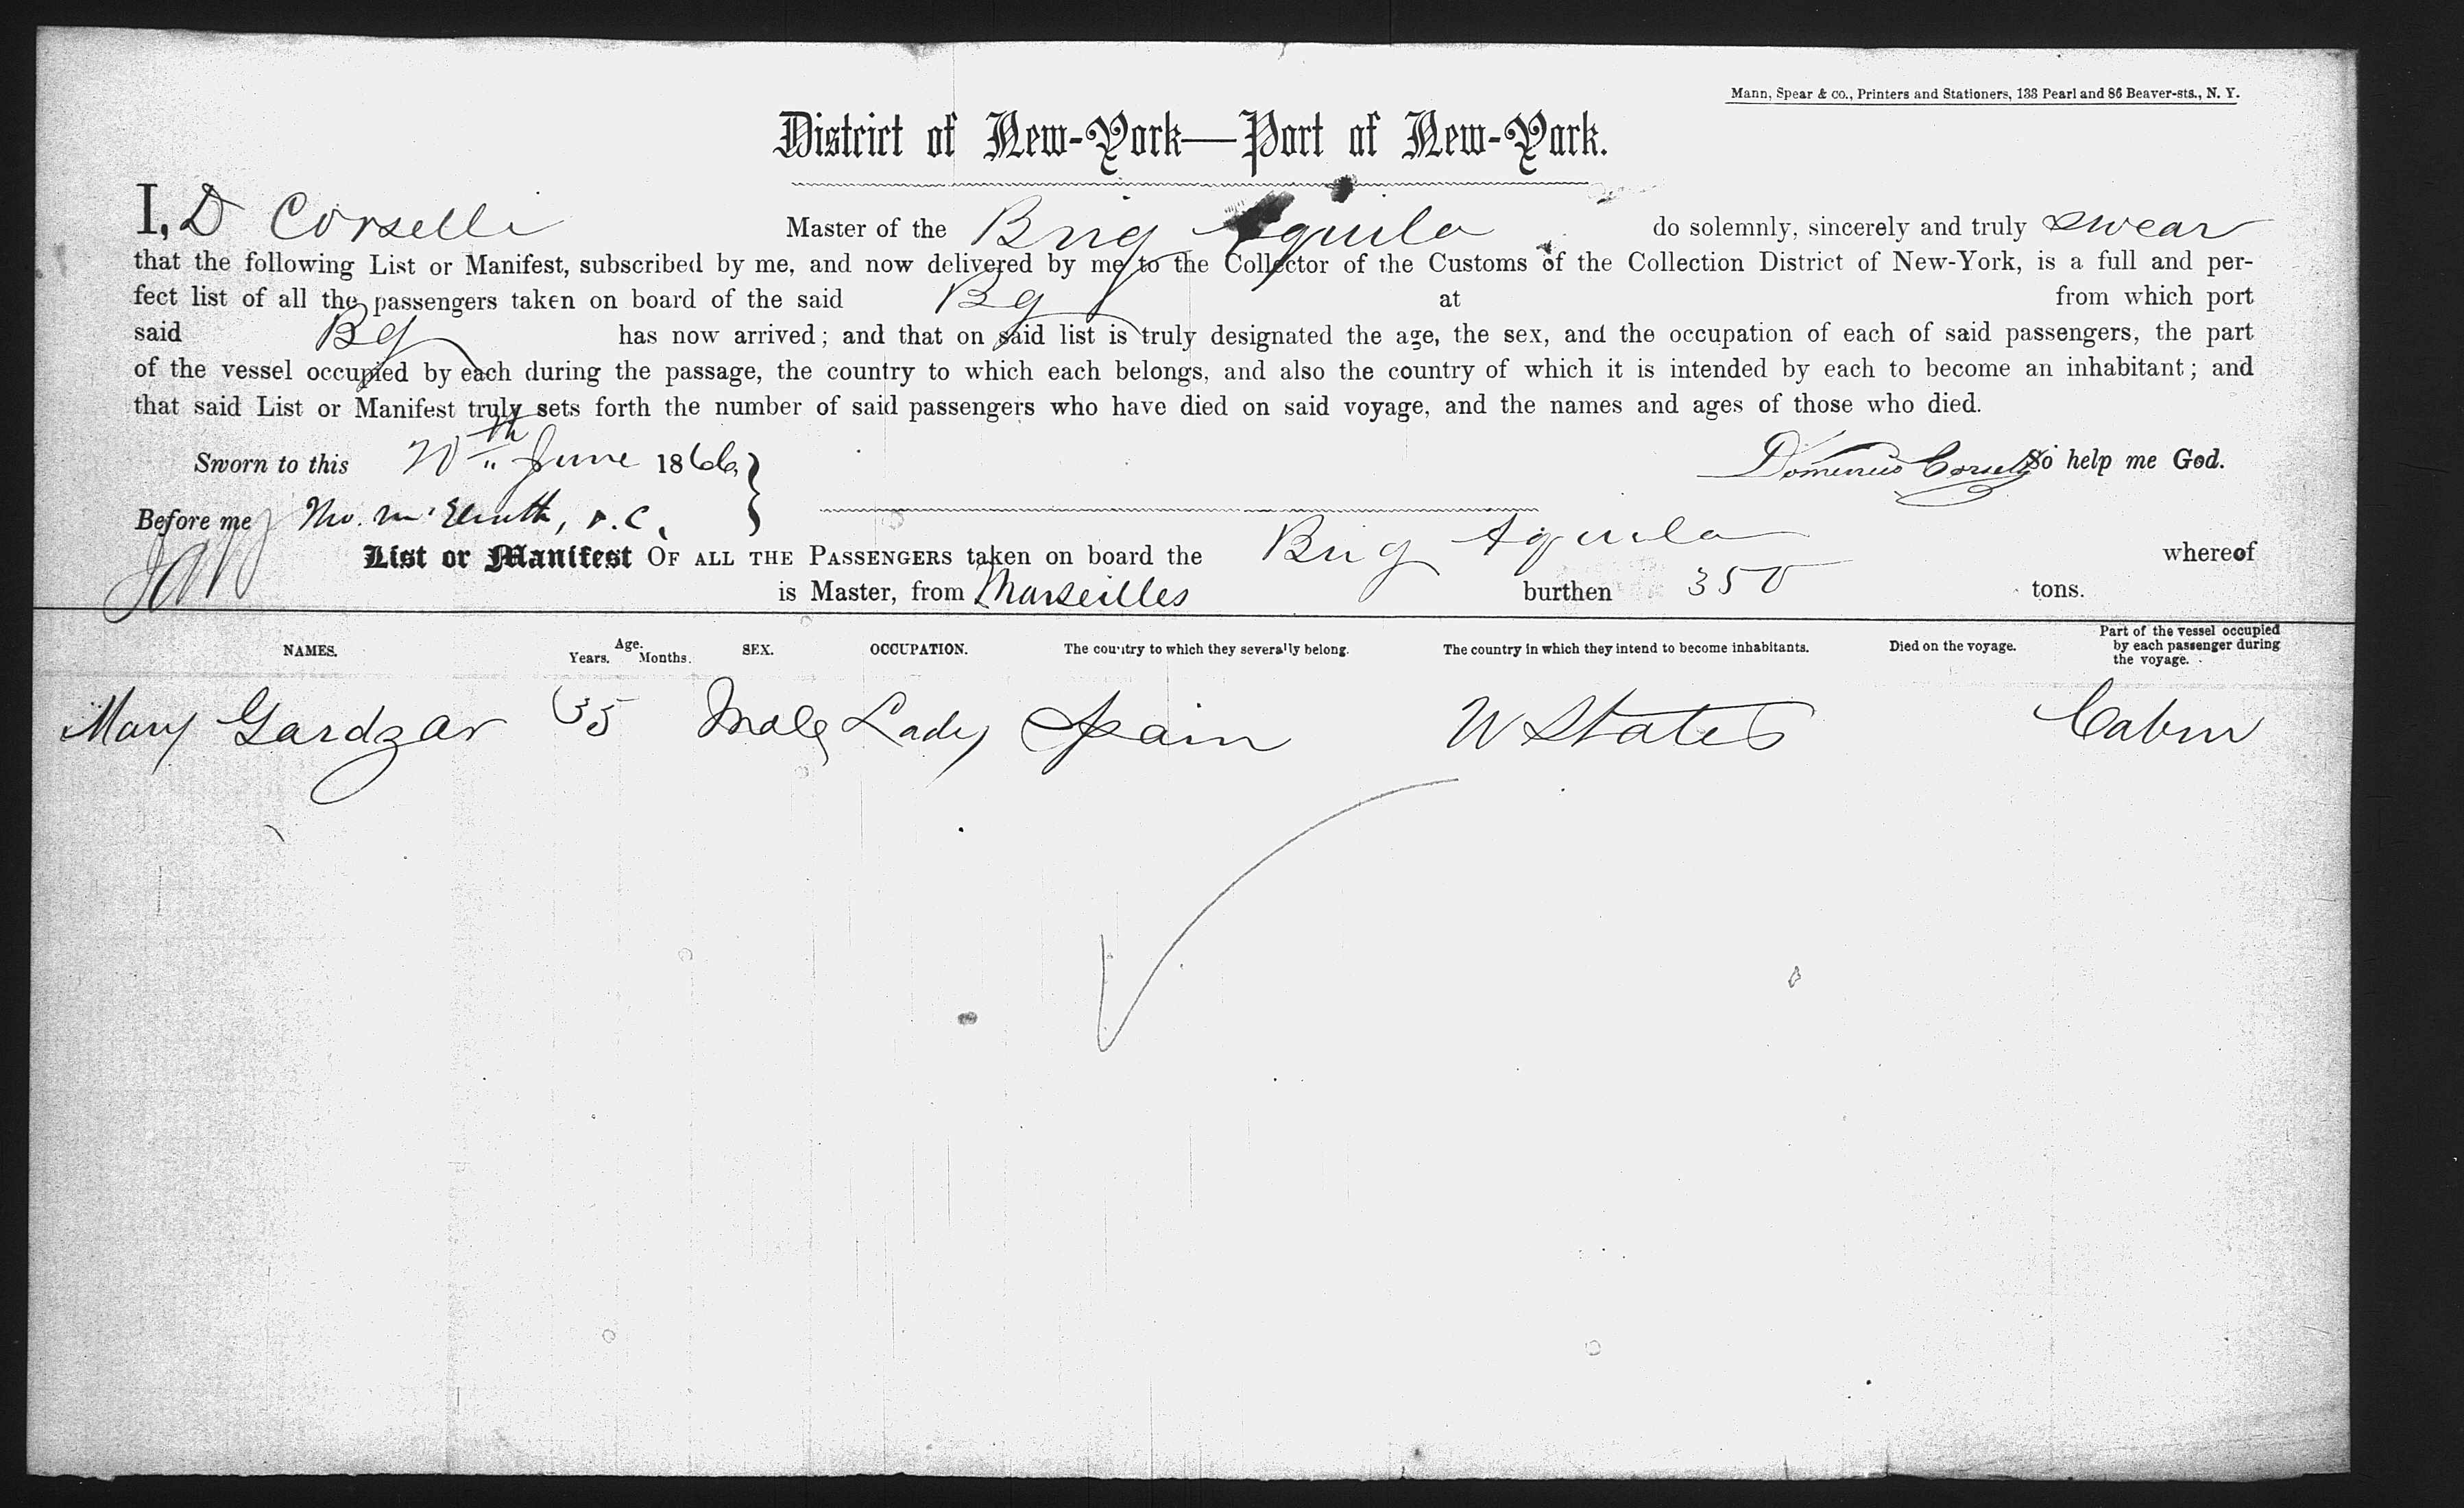 Mann, Spear & co., Printers and Stationers, 133 Pearl and 86 Beaver-sts., N. Y.
District of New-York—Port of New-York.
I, D Corselli Master of the Brig Aquila do solemnly, sincerely and truly swear
that the following List or Manifest, subscribed by me, and now delivered by me to the Collector of the Customs of the Collection District of New-York, is a full and per-
fect list of all the passengers taken on board of the said Bg at from which port
said Bg has now arrived; and that on said list is truly designated the age, the sex, and the occupation of each of said passengers, the part
of the vessel occupied by each during the passage, the country to which each belongs, and also the country of which it is intended by each to become an inhabitant; and
that said List or Manifest truly sets forth the number of said passengers who have died on said voyage, and the names and ages of those who died.
Sworn to this 20th June 1866 So help me God.
Before me D.C.
List or Manifest OF ALL THE PASSENGERS taken on board the Brig Aquila whereof
is Master, from Marseilles burthen 350 tons.
NAMES. Age. Years. Months. SEX. OCCUPATION. The country to which they severally belong. The country in which they intend to become inhabitants. Died on the voyage. Part of the vessel occupied by each passenger during the voyage.
Mary Gardzar 35 Male Lady Spain U States Cabin